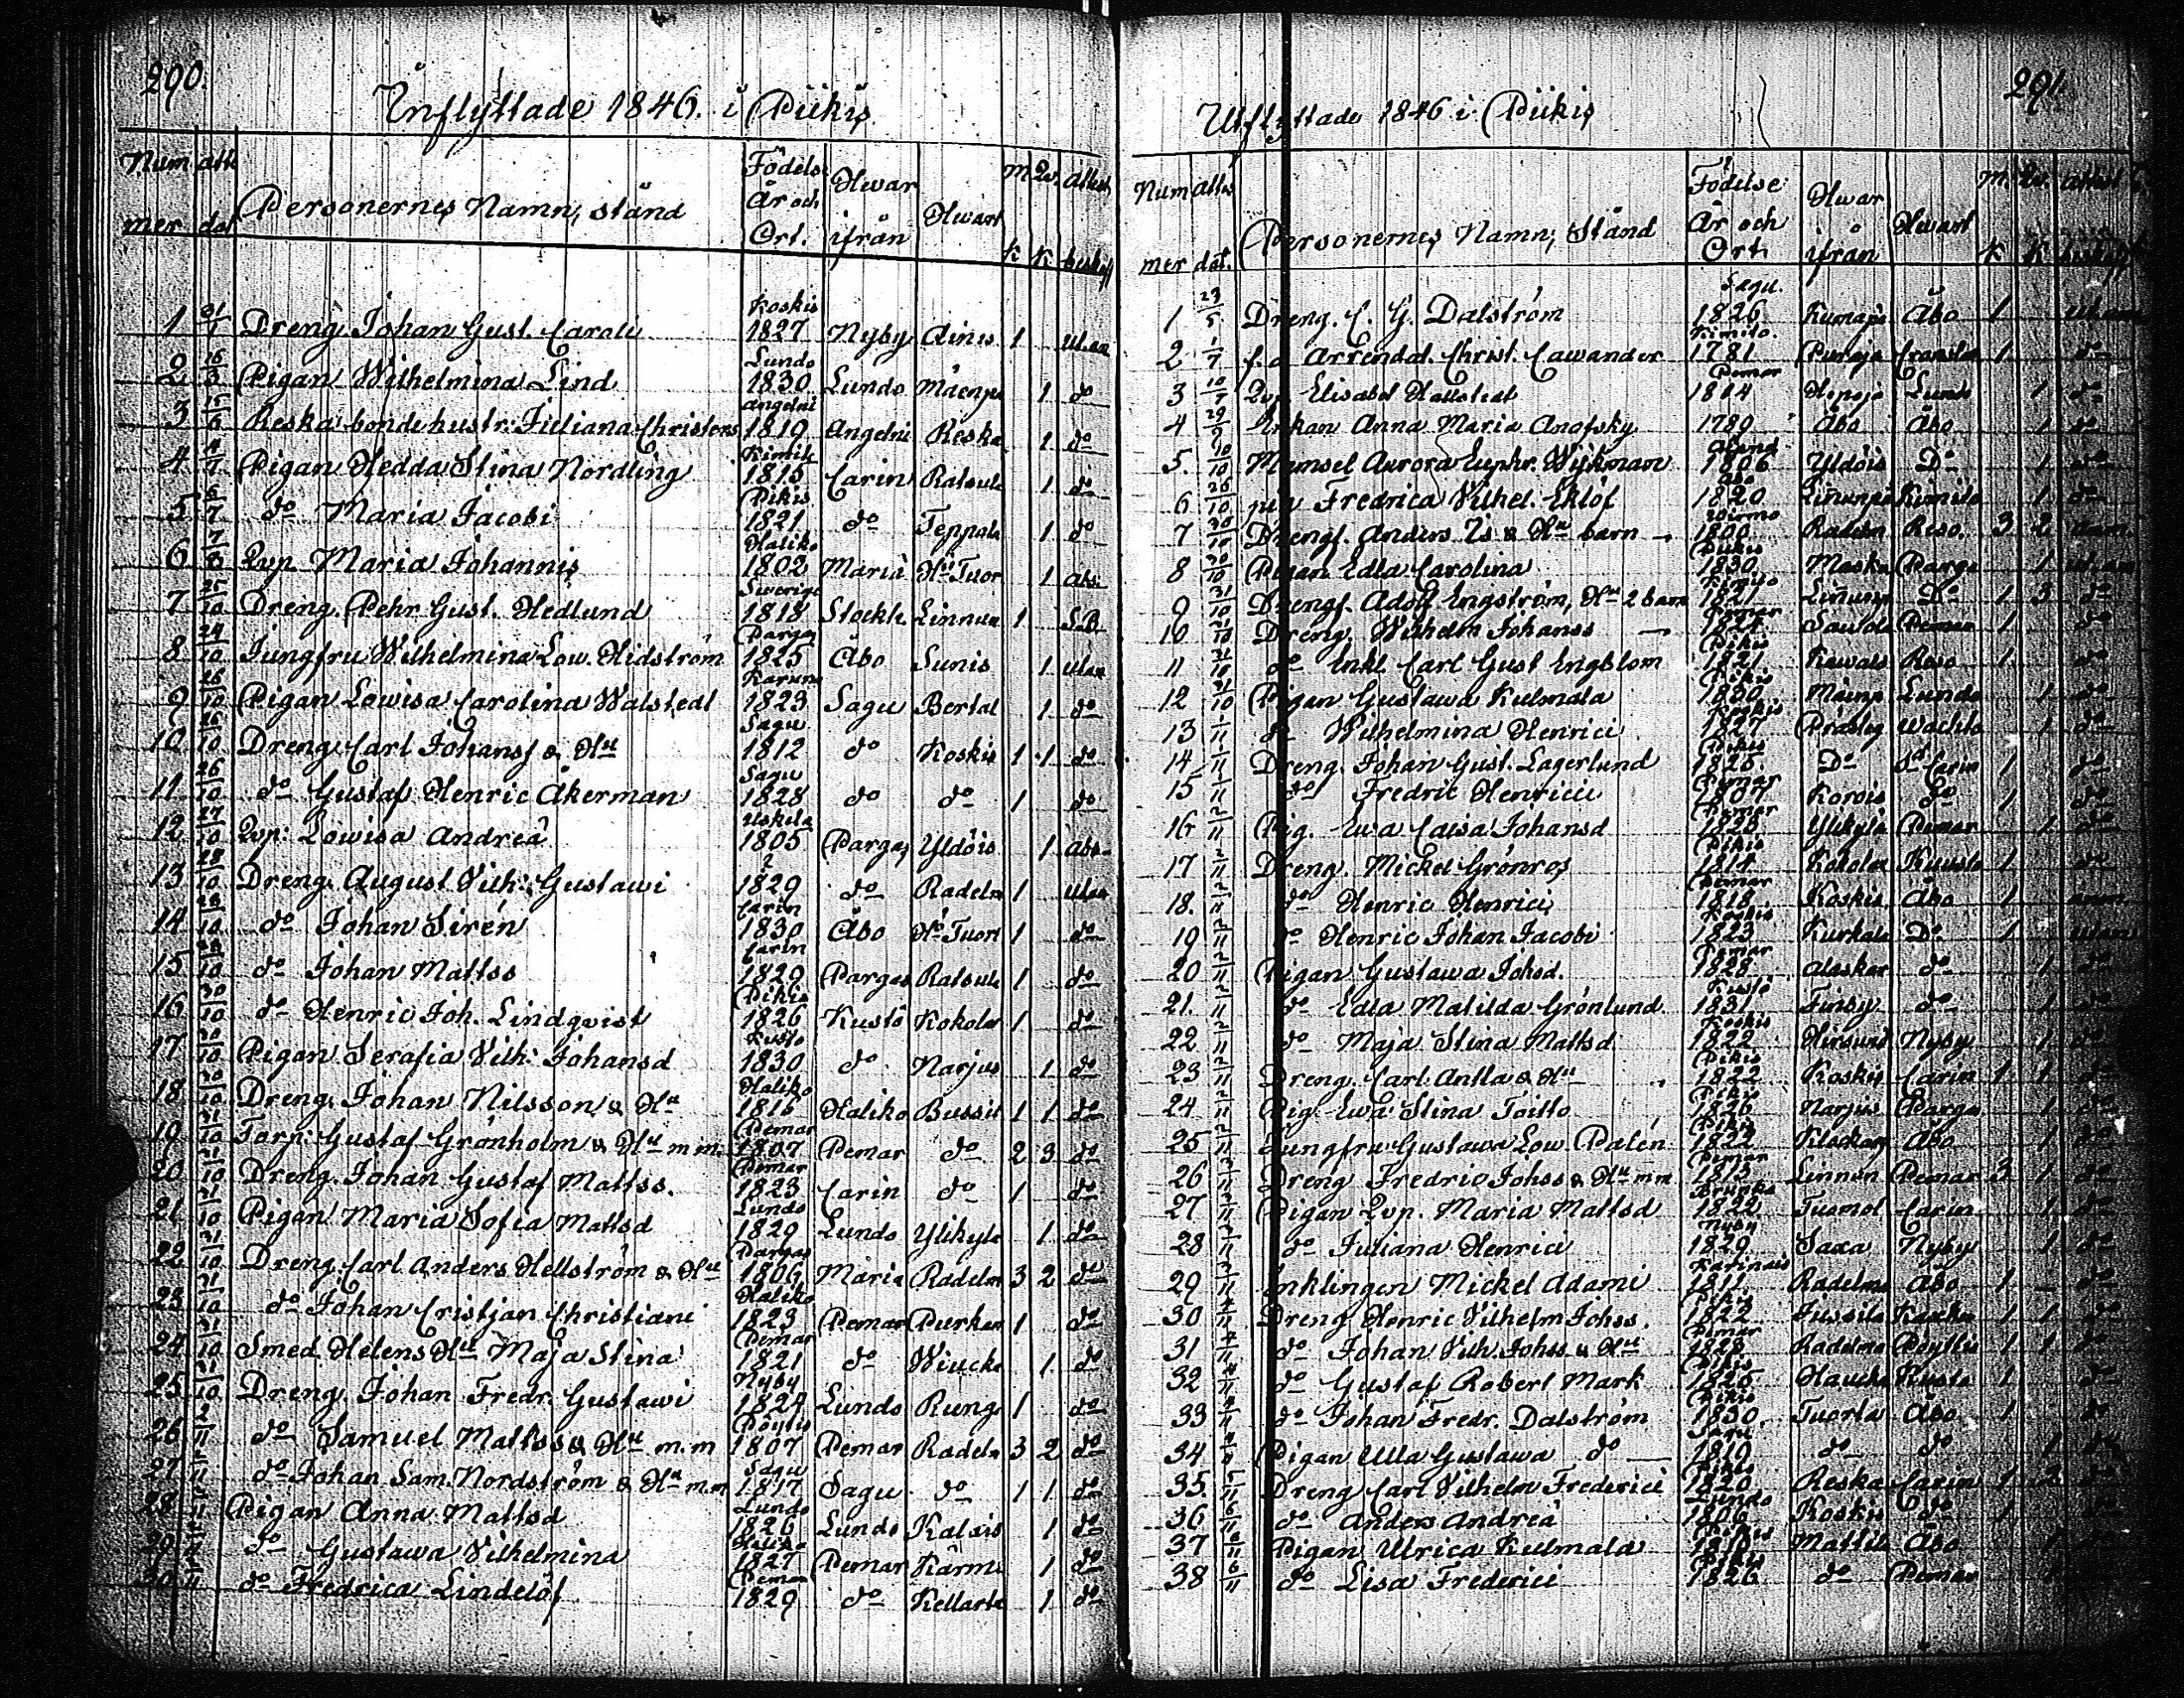 290.
Inflyttade 1846. i Piikis
Num mer
atte dat
Personernes Namn, stånd
Födelse År och Ort.
Hwar ifrån
Hwart
M K
Qv. K
Attest beskaff
1 21/1 Dreng. Johan Gust. Caroli Koskis 1827 Nyby Ainis 1 ut.an
2 16/3 Pigan Wilhelmina Lind Lundo 1830 Lundo Mäenpä 1 do
3 15/6 Reska bonde hustr: Juliana Christens Angelni 1819 Angelni Reska 1 do
4 4/7 Pigan Hedda Stina Nordling Kimito 1815 Carin Ratsula 1 do
5 6/7 do Maria Jacobi Pikis 1821 do Teppala 1 do
6 7/8 Qvp. Maria Johannis Haliko 1802 Maria Hd Tuor 1 abs.
7 25/10 Dreng. Pehr Gust. Hedlund Swerige 1818 Stockh. Linnun 1 S.B.
8 24/10 Jungfru Wilhelmina Low. Hidström Pargas 1825 Åbo Runis 1 utan
9 26/10 Pigan Lowisa Carolina Walstedt Karuna 1823 Sagu Bertal 1 do
10 26/10 Dreng. Carl Johanss & Hu Sagu 1812 do Koskis 1 1 do
11 26/10 do Gustaf Henric Åkerman Sagu 1828 do do 1 do
12 27/10 Qvp: Lowisa Andreä Uskela 1805 Pargas Yldöis 1 abs.
13 28/10 Dreng. August Vilh: Gustawi ? 1829 do Radelm 1 utan
14 28/10 do Johan Sirén Carin 1830 Åbo Hd Tuorl 1 do
15 28/10 do Johan Mattss Carin 1829 Pargas Ratsula 1 do
16 30/10 do Henric Joh. Lindqvist Pikis 1826 Kustö Kokola 1 do
17 30/10 Pigan Serafia Vilh: Johansd Kusto 1830 do Narjus 1 do
18 30/10 Dreng. Johan Nilsson & Hu Haliko 1816 Haliko Bussil 1 1 do
19 31/10 Torp: Gustaf Grönholm & Hu m m. Pemar 1807 Pemar do 2 3 do
20 31/10 Dreng. Johan Gustaf Mattss. Pemar 1823 Carin do 1 do
21 31/10 Pigan Maria Sofia Mattsd Lundo 1829 Lundo Ylikyla 1 do
22 31/10 Dreng. Carl Anders Hellström & Hu Pargas 1806 Maria Radelm 3 2 do
23 31/10 do Johan Cristjan Christiani Haliko 1823 Pemar Purkar 1 do
24 31/10 Smed. Helens Hu Maja Stina Pemar 1821 do Wiucka 1 do
25 31/10 Dreng. Johan Fredr. Gustawi Nyby 1824 Lundo Rungo 1 do
26 2/11 do Samuel Mattss & Hu m.m Pöytis 1807 Pemar Radelm 3 2 do
27 2/11 do Johan Sam. Nordström & Hu m.m Sagu 1817 Sagu do 1 1 do
28 2/11 Pigan Anna Mattsd Lundo 1826 Lundo Katsis 1 do
29 2/11 do Gustawa Vilhelmina Haliko 1827 Pemar Kärmi 1 do
30 2/11 do Fredrica Lindelöf Pemar 1829 do Kellarla 1 do
291.
Utflyttade 1846 i Piikis
Num mer
attes dat.
Personernes Namn, Stånd
Födelse År och Ort.
Hwar ifrån
Hwart
M. K
Qv. K
1 23/5 Dreng. C. G. Dalström Sagu. 1826 Kumaja Åbo 1
2 1/7 f.d Arrendat. Christ. Cawander Kimito. 1781 Puroja 1 do
3 10/7 Qvp. Elisabet Hallstedt Pemar 1814 Hepoja Lundo 1 do
4 29/9 Enkan Anna Maria Anofsky 1789 Åbo Åbo 1 do
5. 10/10 Mamsel Aurora Euphr. Wijkman Åland 1806 Yldöis Do 1 do
6 26/10 Fredrica Vilhel. Eklöf Åbo 1820 Linunpä Kimito 1 do
7 30/10 Drengf. Anders Is & Hu barn Wirmo 1800 Radelm Reso. 3 2
8 30/10 Pigan Edla Carolina Piikis 1830 Maska Parga 1
9 31/10 Drengf. Adolf Engström, Hu 2 barn Kimito 1821 Linunpä Do 1 3 do
10 31/10 Dreng. Wilhelm Johanss Pemar 1824 Pemar 1 do
11 31/10 do Enkl. Carl Gust Engblom Pikis 1821 Kawals Reso 1 do
12 31/10 Pigan Gustawa Kulmala Pikis 1830 Mäinp Lundo 1 do
13 1/11 do Wilhelmina Henrici Koskis 1827 Wachto 1 do
14 1/11 Dreng. Johan Gust. Lagerlund Pikis 1828 Do Carin 1 do
15 1/11 do Fredric Henrici Pemar 1807 Korois do 1 do
16 2/11 Pig. Ewa Caisa Johansd Pemar 1828 Ylikylä Pemar 1 do
17 2/11 Dreng. Mickel Grönros Pikis 1814 Kokola Kuusto 1 do
18. 2/11 do Henric Henrici Pemar 1818 Koskis Åbo 1
19 2/11 do Henric Johan Jacobi Koskis 1823 Kurkela Do 1
20 2/11 Pigan Gustawa Johsd. Pemar 1828 Alaskar do 1 do
21. 2/11 do Edla Matilda Grönlund Kustö 1831 Finby do 1 do
22 2/11 do Maja Stina Mattsd. Koskis 1822 Nyby 1 do
23 2/11 Dreng. Carl Antta & Hu Pikis 1822 Koskis Carin 1 1 do
24 2/11 Pig. Ewa Stina Toitto Pikis 1826 Narjus Parga 1 do
25 2/11 Jungfru Gustawa Low. Palén Pikis 1822 Åbo 1 do
26 3/11 Dreng Fredric Johss & Hu m m Pemar 1813 Linnun Pemar 3 1 do
27 2/11 Pigan Qvp. Maria Mattsd 1822 Carin 1 do
28 2/11 do Juliana Henrici Nyby 1829 Saxa Nyby 1 do
29 3/11 Inklingen Mickel Adami Karinais 1811 Radelma Åbo 1 do
30 4/11 Dreng Henric Vilhelm Johss. Pikis 1822 Jussila 1 1 do
31 4/11 do Johan Vilh. Johss & Hu Pemar 1828 Radelma Pöyttis 1 1 do
32 4/11 do Gustaf Robert Mark Pikis 1825 Kusto 1 do
33 4/11 do Johan Fredr. Dalström Pikis 1830. Tuorla Åbo 1 do
34 Pigan Ulla Gustawa do Sagu 1819 do do 1 do
35. 5/11 Dreng Carl Vilhelm Frederici Pikis 1820 Reska Carin 1 2 do
36 6/11 do Anders Andreä Lundo 1806 Koskis do 1 do
37 6/11 Pigan Ulrica Kulmala Pikis 1810 Mattila Åbo
38 6/11 do Lisa Frederici Pikis 1826 do Pemar